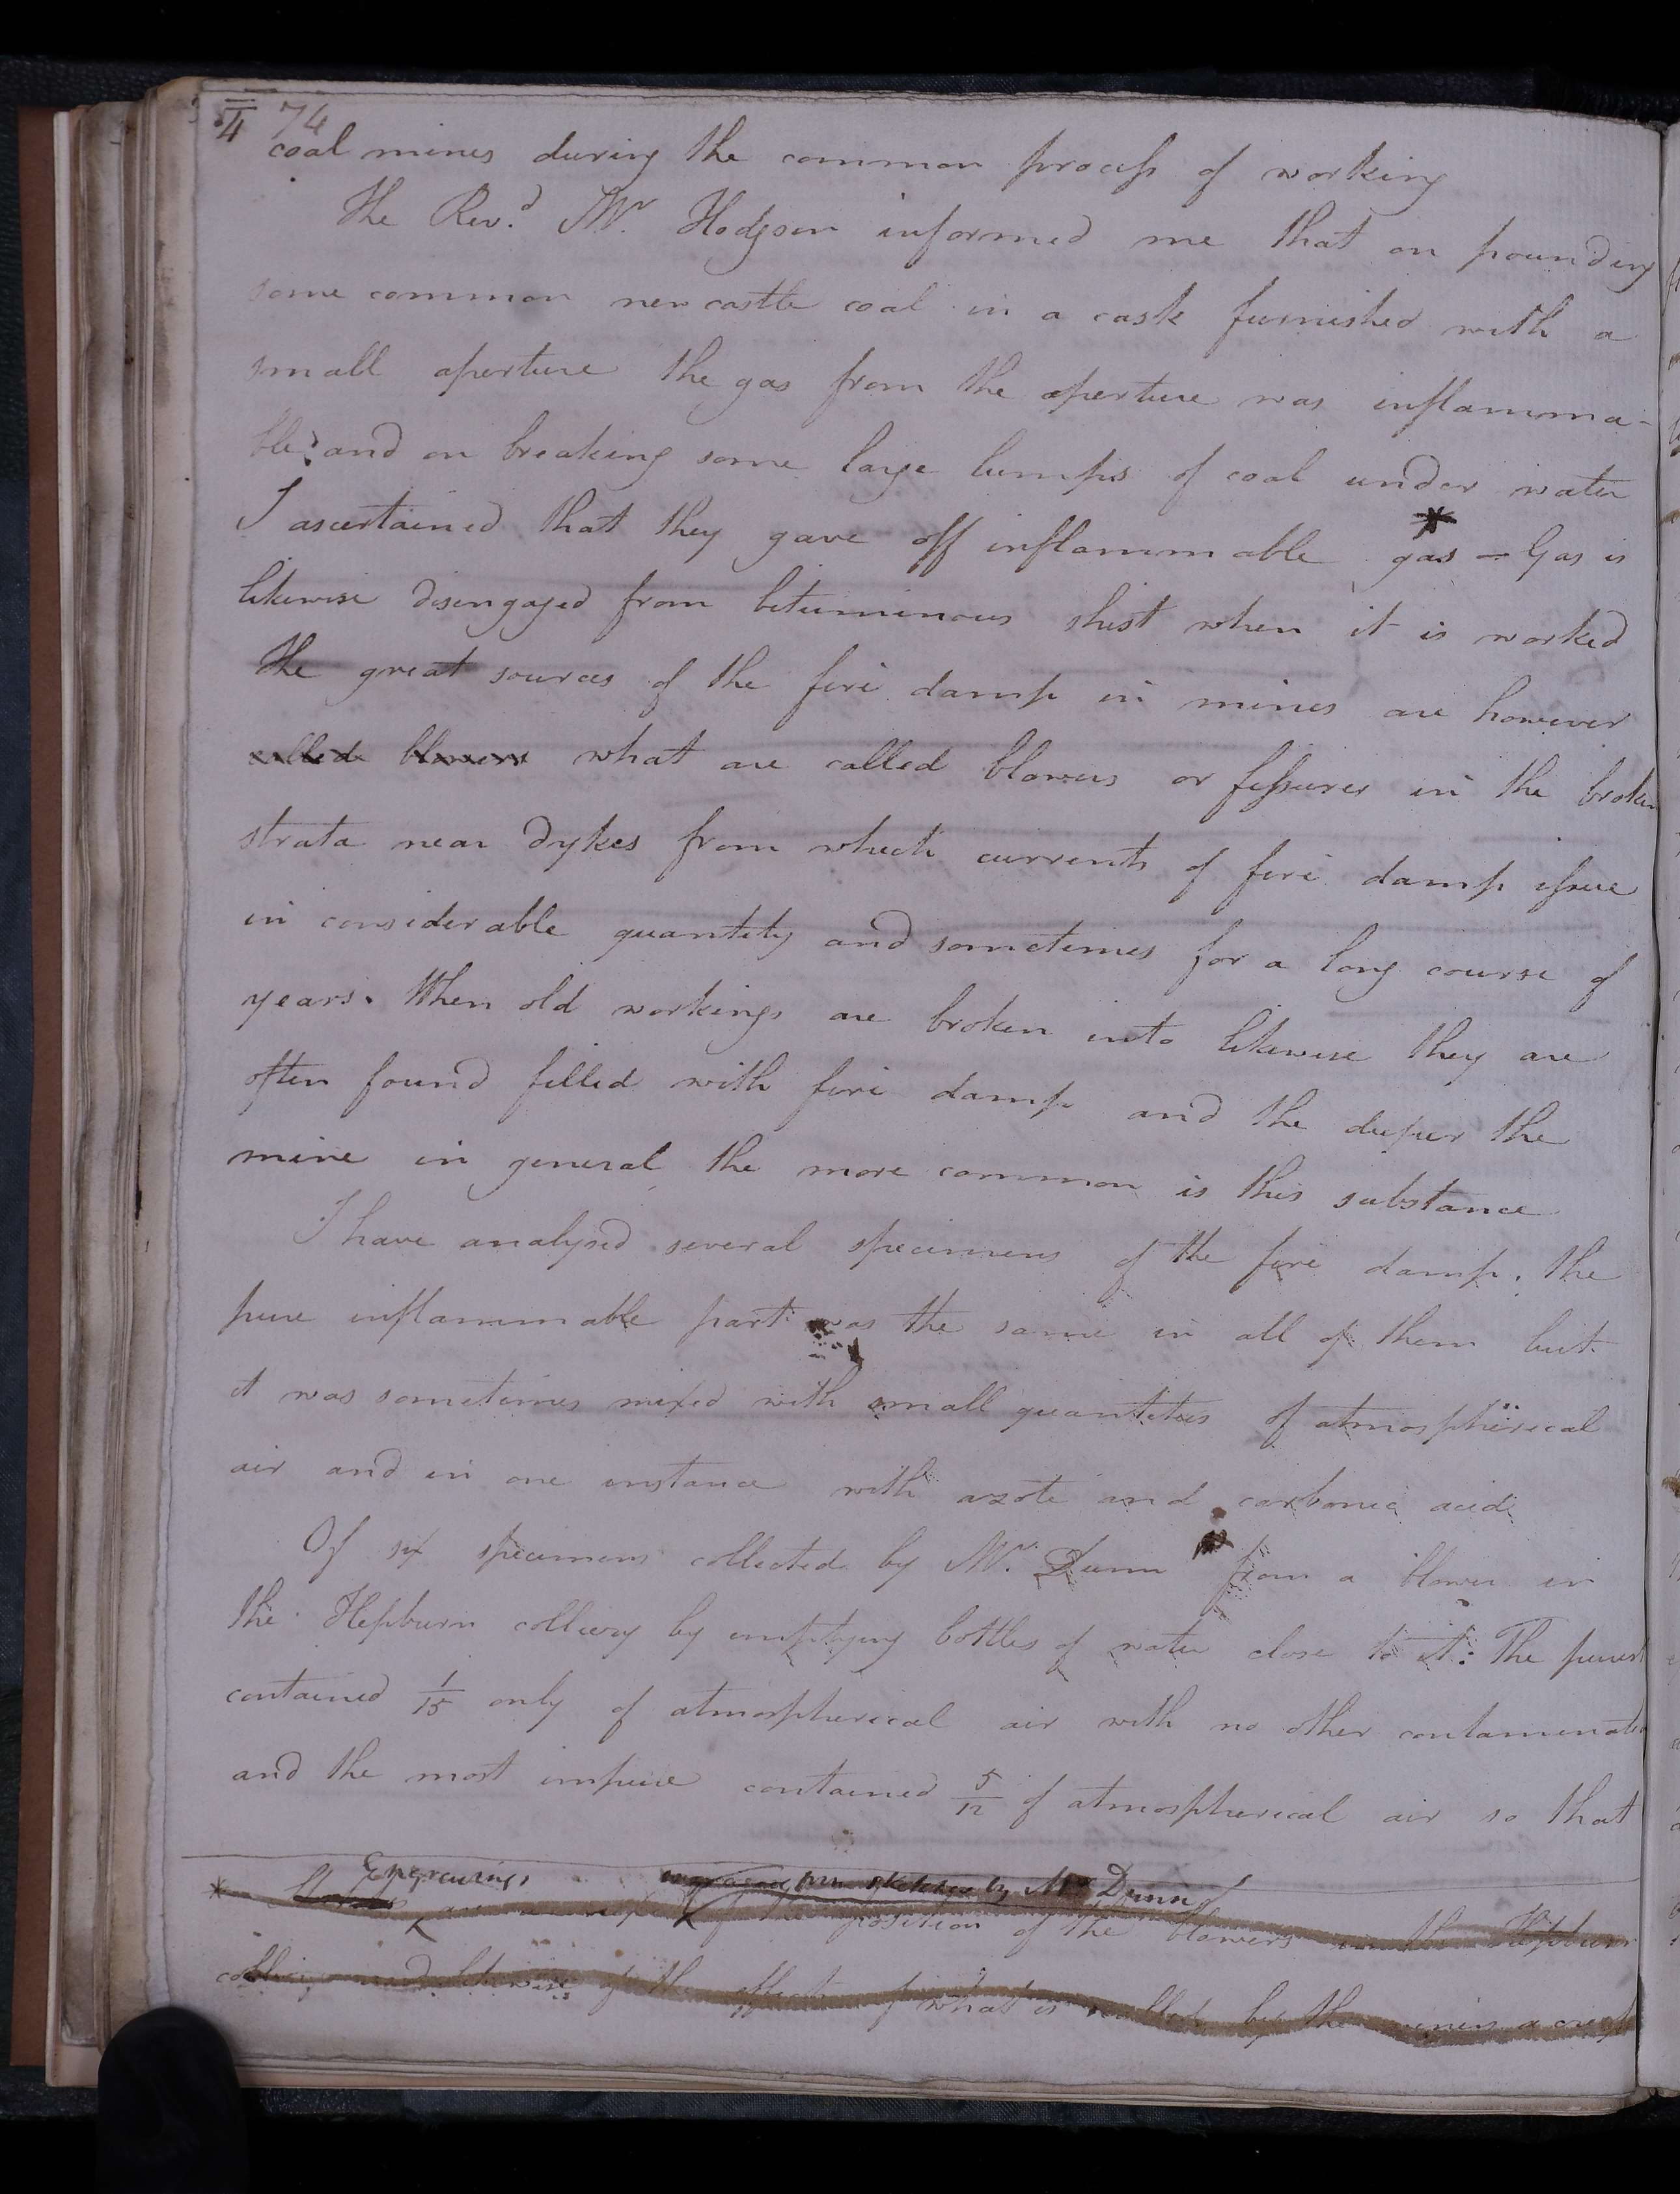 4 74
coal mines during the common process of working
The Rev.d Mr. Hodgson informed me that on pounding
some common newcastle coal in a cask furnished with a
small aperture the gas from the aperture was inflamma-
ble; and on breaking some large lumps of coal under water
I ascertained that they gave off inflammable gas * = Gas is
likewise disengaged from bituminous shist when it is worked
The great sources of the fire damp in mines are however
called blowers what are called blowers or fissures in the broken
strata near dykes from which currents of fire damp issue
in considerable quantity and sometimes for a long course of
years. When old workings are broken into likewise they are
often found filled with fire damp and the deeper the
mine in general the more common is this substance
I have analysed several specimens of the fire damp. the
pure inflammable part was the same in all of them but
it was sometimes mixed with small quantities of atmospherical
air and in one instance with azote and carbonic acid
Of six specimens collected by Mr. Dunn from a blower in
the Hepburn colliery by emptying bottles of water close to it: The purest
contained 1/15 only of atmospherical air with no other contamination
and the most impure contained 5/12 of atmospherical air so that
Engravings sketches by Mr Dunn of
* position of the blowers in the Hepburn
colliery and likewise of the effects of what is called by the miners a creep